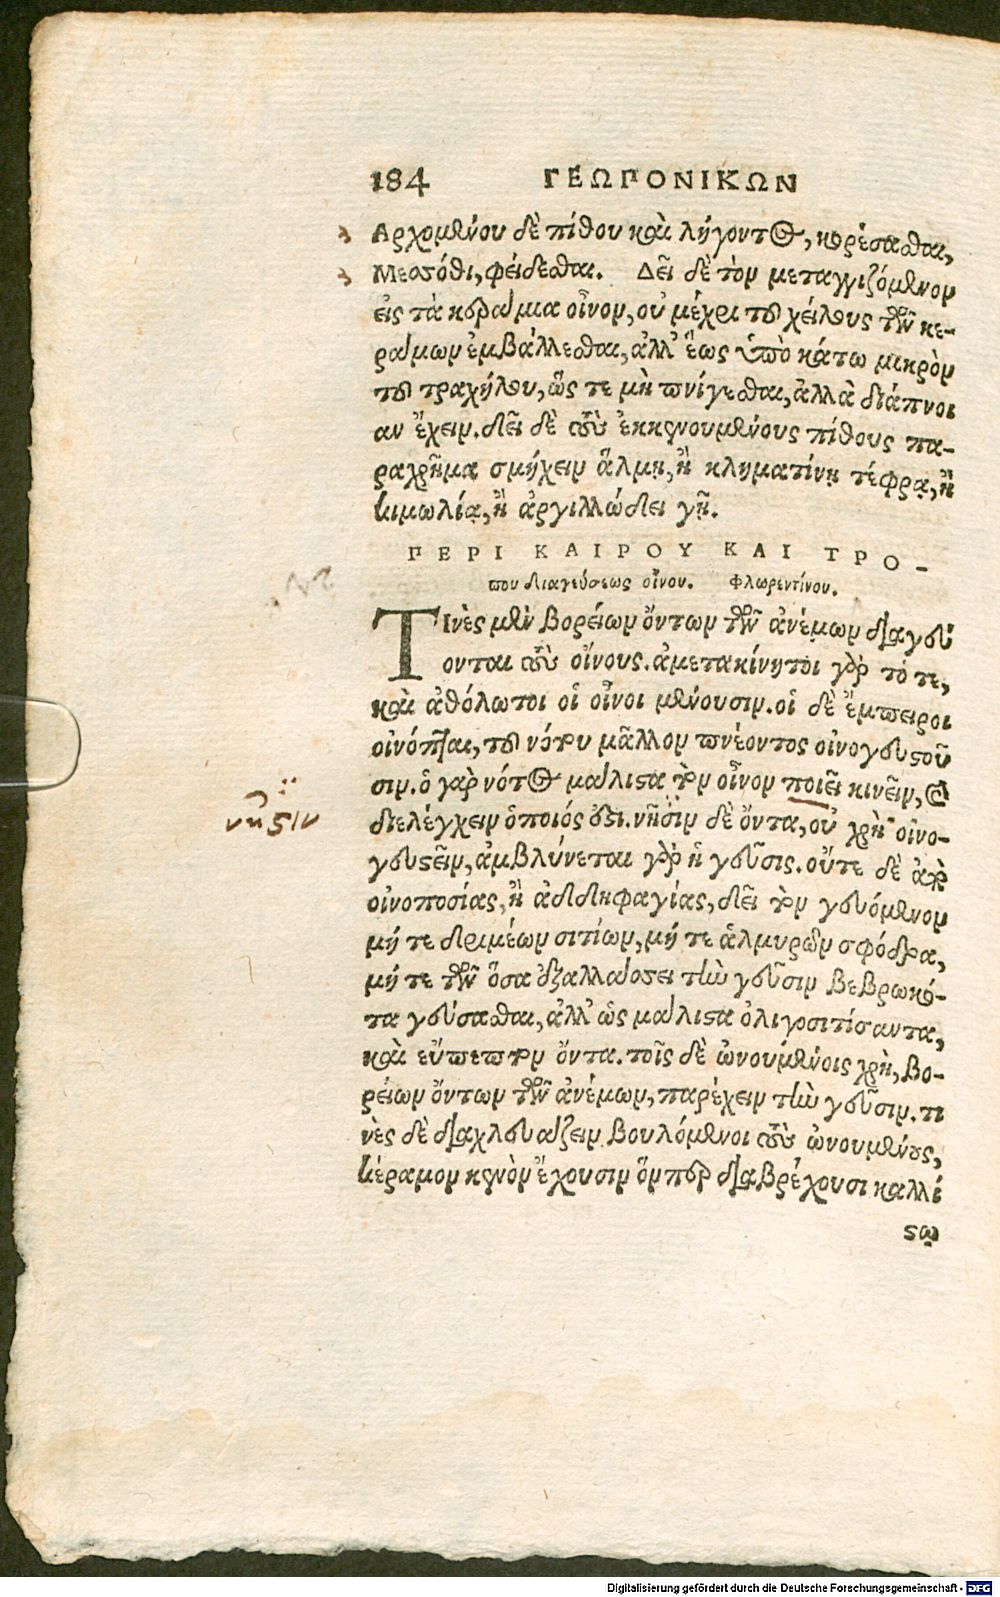 184 ΓΕΩΠΟΝΙΚΩΝ
Ἀρχομένου δὲ πίθου καὶ λήγοντος, κορέσασθαι,
Μεσσόθι, φείδεσθαι. Δεῖ δὲ τὸν μεταγγιζόμενον
εἰς τὰ κεράμια οἶνον, οὐ μέχρι τοῦ χείλους τῶν κε-
ράμων ἐμβάλλεσθαι, ἀλλ' ἕως ὑπὸ κάτω μικρὸν
τοῦ τραχήλου, ὥς τε μὴ πνίγεσθαι, ἀλλὰ διάπνοι
αν ἔχειν. δεῖ δὲ τοὺς ἐκκενουμένους πίθους πα-
ραχρῆμα σμήχειν ἅλμῃ, ἢ κληματίνῃ τέφρᾳ, ἢ
κιμωλίᾳ, ἢ ἀργιλλώδει γῇ.
ΠΕΡΙ ΚΑΙΡΟΥ ΚΑΙ ΤΡΟ-
που διαγεύσεως οἴνου. Φλωρεντίνου.
Τινὲς μὲν βορείων ὄντων τῶν ἀνέμων διαγεύ
ονται τοὺς οἴνους. ἀμετακίνητοι γὰρ τό τε,
καὶ ἀθόλωτοι οἱ οἶνοι μένουσιν. οἱ δὲ ἔμπειροι
οἰνόπται, τοῦ νότου μᾶλλον πνέοντος οἰνογευστοῦ
σιν. ὁ γὰρ νότος μάλιστα τὸν οἶνον ποιεῖ κινεῖν, καὶ
διελέγχειν ὁποιός ἐστι. νῆσιν δὲ ὄντα, οὐ χρὴ οἰνο-
γευστεῖν, ἀμβλύνεται γὰρ ἡ γεῦσις. οὔτε δὲ ἀπὸ
οἰνοποσίας, ἢ ἀδδηφαγίας, δεῖ τὸν γευόμενον
μή τε δριμέων σιτίων, μή τε ἁλμυρῶν σφόδρα,
μή τε τῶν ὅσα ἐξαλλάσσει τὴν γεῦσιν βεβρωκό-
τα γεύσασθαι, ἀλλ' ὡς μάλιστα ὀλιγοσιτίσαντα,
καὶ εὔπεπτον ὄντα. τοῖς δὲ ὠνουμένοις χρὴ, βο-
ρείων ὄντων τῶν ἀνέμων, παρέχειν τὴν γεῦσιν. τι
νὲς δὲ διαχλευάζειν βουλόμενοι τοὺς ὠνουμένους,
κέραμον κενὸν ἔχουσιν ὅνπερ διαβρέχουσι καλλί
στῳ
νῆστιν
Digitalisierung gefördert durch die Deutsche Forschungsgemeinschaft - DFG